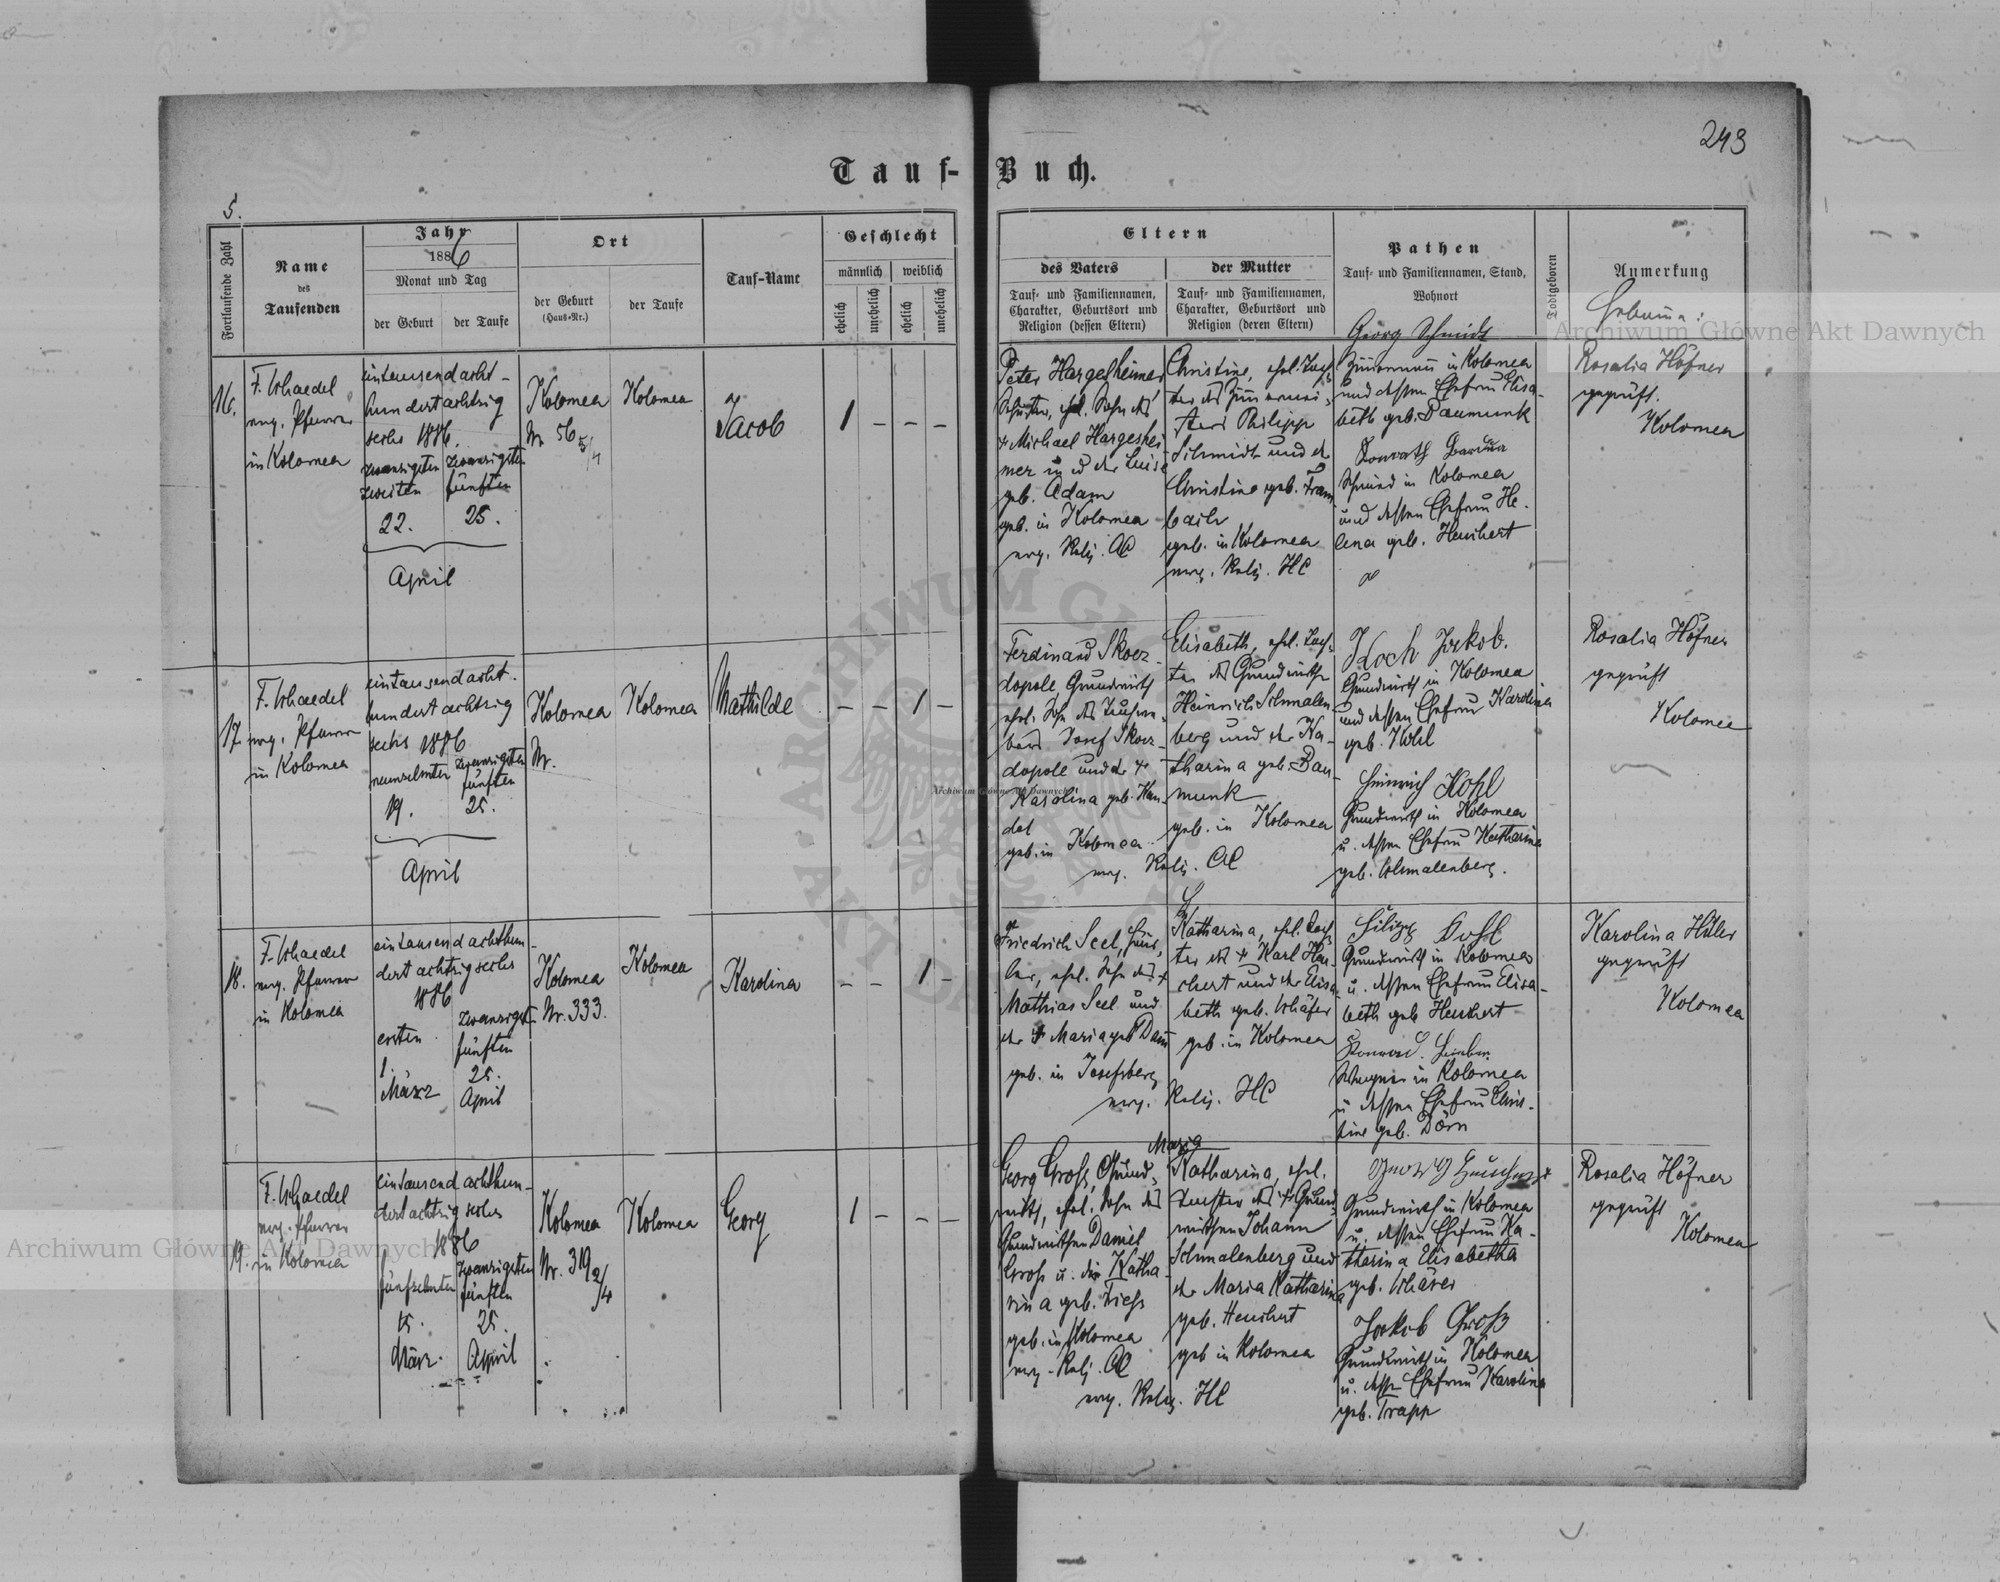 243
Tauf-Buch.
5.
Fortlaufende Zahl
Name
des
Taufenden
Jahr
1886
Monat und Tag
der Geburt
der Taufe
Ort
der Geburt
(Haus-Nr.)
der Taufe
Tauf-Name
Geschlecht
männlich
weiblich
ehelich
unehelich
ehelich
unehelich
Eltern
des Vaters
Tauf- und Familiennamen,
Charakter, Geburtsort und
Religion (dessen Eltern)
der Mutter
Tauf- und Familiennamen,
Charakter, Geburtsort und
Religion (deren Eltern)
Pathen
Tauf- und Familiennamen, Stand,
Wohnort
Todtgeboren
Anmerkung
Hebamme:
16.
F. Schaedel
evg. Pfarrer
in Kolomea
eintausend acht-
hundert achtzig
sechs 1886.
zwanzigsten
zweiten
22.
zwanzigsten
fünften
25.
April
Kolomea
Nr. 56 5/4
Kolomea
Jacob
1 - - -
Peter Hargesheimer
Schuster, ehel. Sohn des
+ Michael Hargeshei
mer u d der Luise
geb. Adam
geb. in Kolomea
evg. Relig. AC
Christine, ehel. Toch
ter des Zimmermei-
sters Philipp
Schmidt und d
Christine geb. Fram
bach
geb. in Kolomea
evg. Relig. HC
Georg Schmidt
Zimmermann in Kolomea
und dessen Ehefrau Elisa-
beth geb. Baumunk
Konrath
Schmied in Kolomea
und dessen Ehefrau He-
lena geb. Heuchert
Rosalia Höfner
geprüft.
Kolomea
17
F. Schaedel
evg. Pfarrer
in Kolomea
eintausend acht-
hundert achtzig
sechs 1886
neunzehnten
19.
zwanzigsten
fünften
25.
April
Kolomea
Nr.
Kolomea
Mathilde
- - 1 -
Ferdinand Skorz-
dopole, Grundwirth
ehel. Sohn des
Josef Skorz-
dopole und der +
Karolina geb. Han-
del
geb. in Kolomea
Elisabeth, ehel. Toch-
ter des Grundwirths
Heinrich Schmalen-
berg und der Ka-
tharina geb. Bau-
munk
geb. in Kolomea
evg. Relig. AC
Koch Jakob.
Grundwirth in Kolomea
und dessen Ehefrau Karolina
geb. Kohl
Heinrich Kohl
Grundwirth in Kolomea
u. dessen Ehefrau Katharina
geb. Schmalenberg.
Rosalia Höfner
geprüft
Kolomea
18.
F. Schaedel
evg. Pfarrer
in Kolomea
eintausend achthun-
dert achtzig sechs
1886
ersten
1.
März
zwanzigst
fünften
25.
April
Kolomea
Nr. 333.
Kolomea
Karolina
- - 1 -
Friedrich Seel, Häus-
ler, ehel. Sohn des +
Mathias Seel und
der + Maria geb Daum
geb. in Josefsberg
Katharina, ehel. Toch
ter des + Karl Heu-
chert und der Elisa-
beth geb. Schäfer
geb. in Kolomea
evg. Relig. HC
Filipp Kohl
Grundwirth in Kolomea
u. dessen Ehefrau Elisa-
beth geb Heuchert
Konrad.
Wagner in Kolomea
u dessen Ehefrau Chris-
tine geb. Dörn
Karolina Hiller
geprüft
Kolomea
19.
F. Schaedel
evg. Pfarrer
in Kolomea
eintausend achthun-
dert achtzig sechs
1886
fünfzehnten
15.
März.
zwanzigsten
fünften
25.
April
Kolomea
Nr. 319 2/4
Kolomea
Georg
1 - - -
Georg Gross, Grund-
wirth, ehel. Sohn des
Grundwirthen Daniel
Gross u. der Katha-
rina geb. Friess
geb. in Kolomea
evg. Relig. AC
Maria
Katharina, ehel.
Tochter des + Grund-
wirthen Johann
Schmalenberg und
der Maria Katharina
geb. Heuchert
geb in Kolomea
evg. Relig. HC
Georg Heuchert
Grundwirth in Kolomea
u. dessen Ehefrau Ka-
tharina Elisabetha
geb. Schäfer
Jakob Groß
Grundwirth in Kolomea
u. dessen Ehefrau Karolina
geb. Trapp
Rosalia Höfner
geprüft
Kolomea
Archiwum Główne Akt Dawnych
Archiwum Główne Akt Dawnych
Archiwum Główne Akt Dawnych